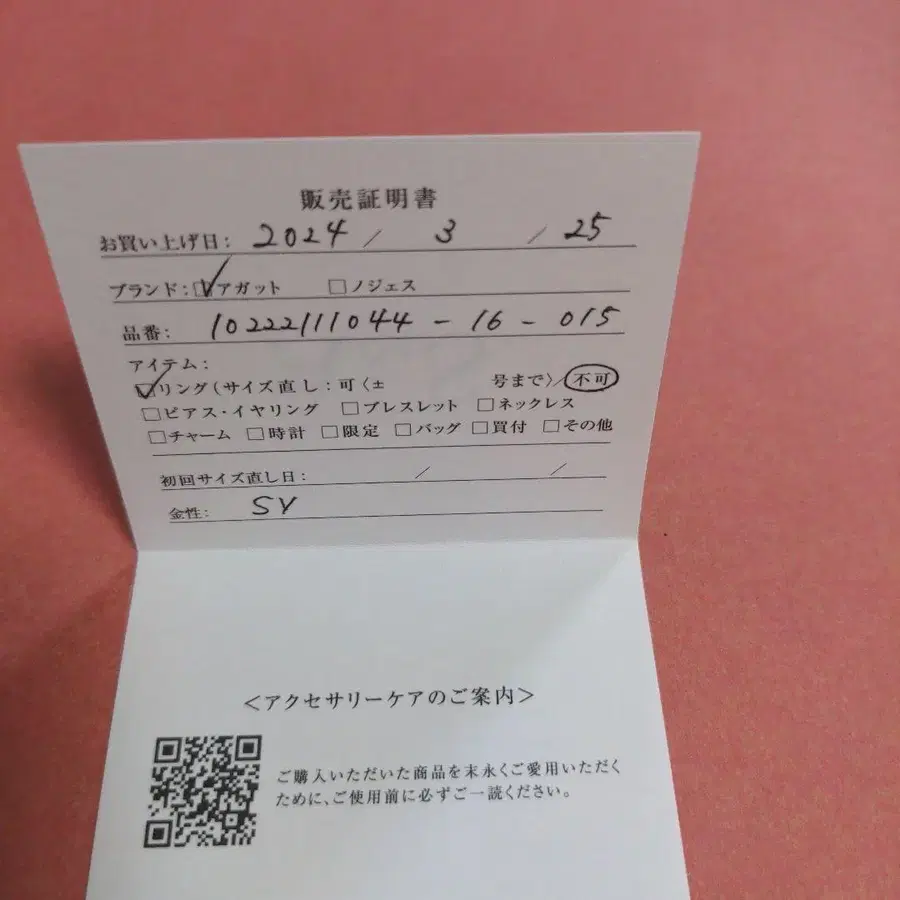 販売証明書
お買い上げ日: 2024 / 3 / 25
ブランド: ☑アガット □ノジェス
品番: 10222111044 - 16 - 015
アイテム:
☑リング(サイズ直し:可〈± 号まで〉/不可
□ピアス・イヤリング □ブレスレット □ネックレス
□チャーム □時計 □限定 □バッグ □買付 □その他
初回サイズ直し日: / /
金性: SV
<アクセサリーケアのご案内>
ご購入いただいた商品を末永くご愛用いただく
ために、ご使用前に必ずご一読ください。